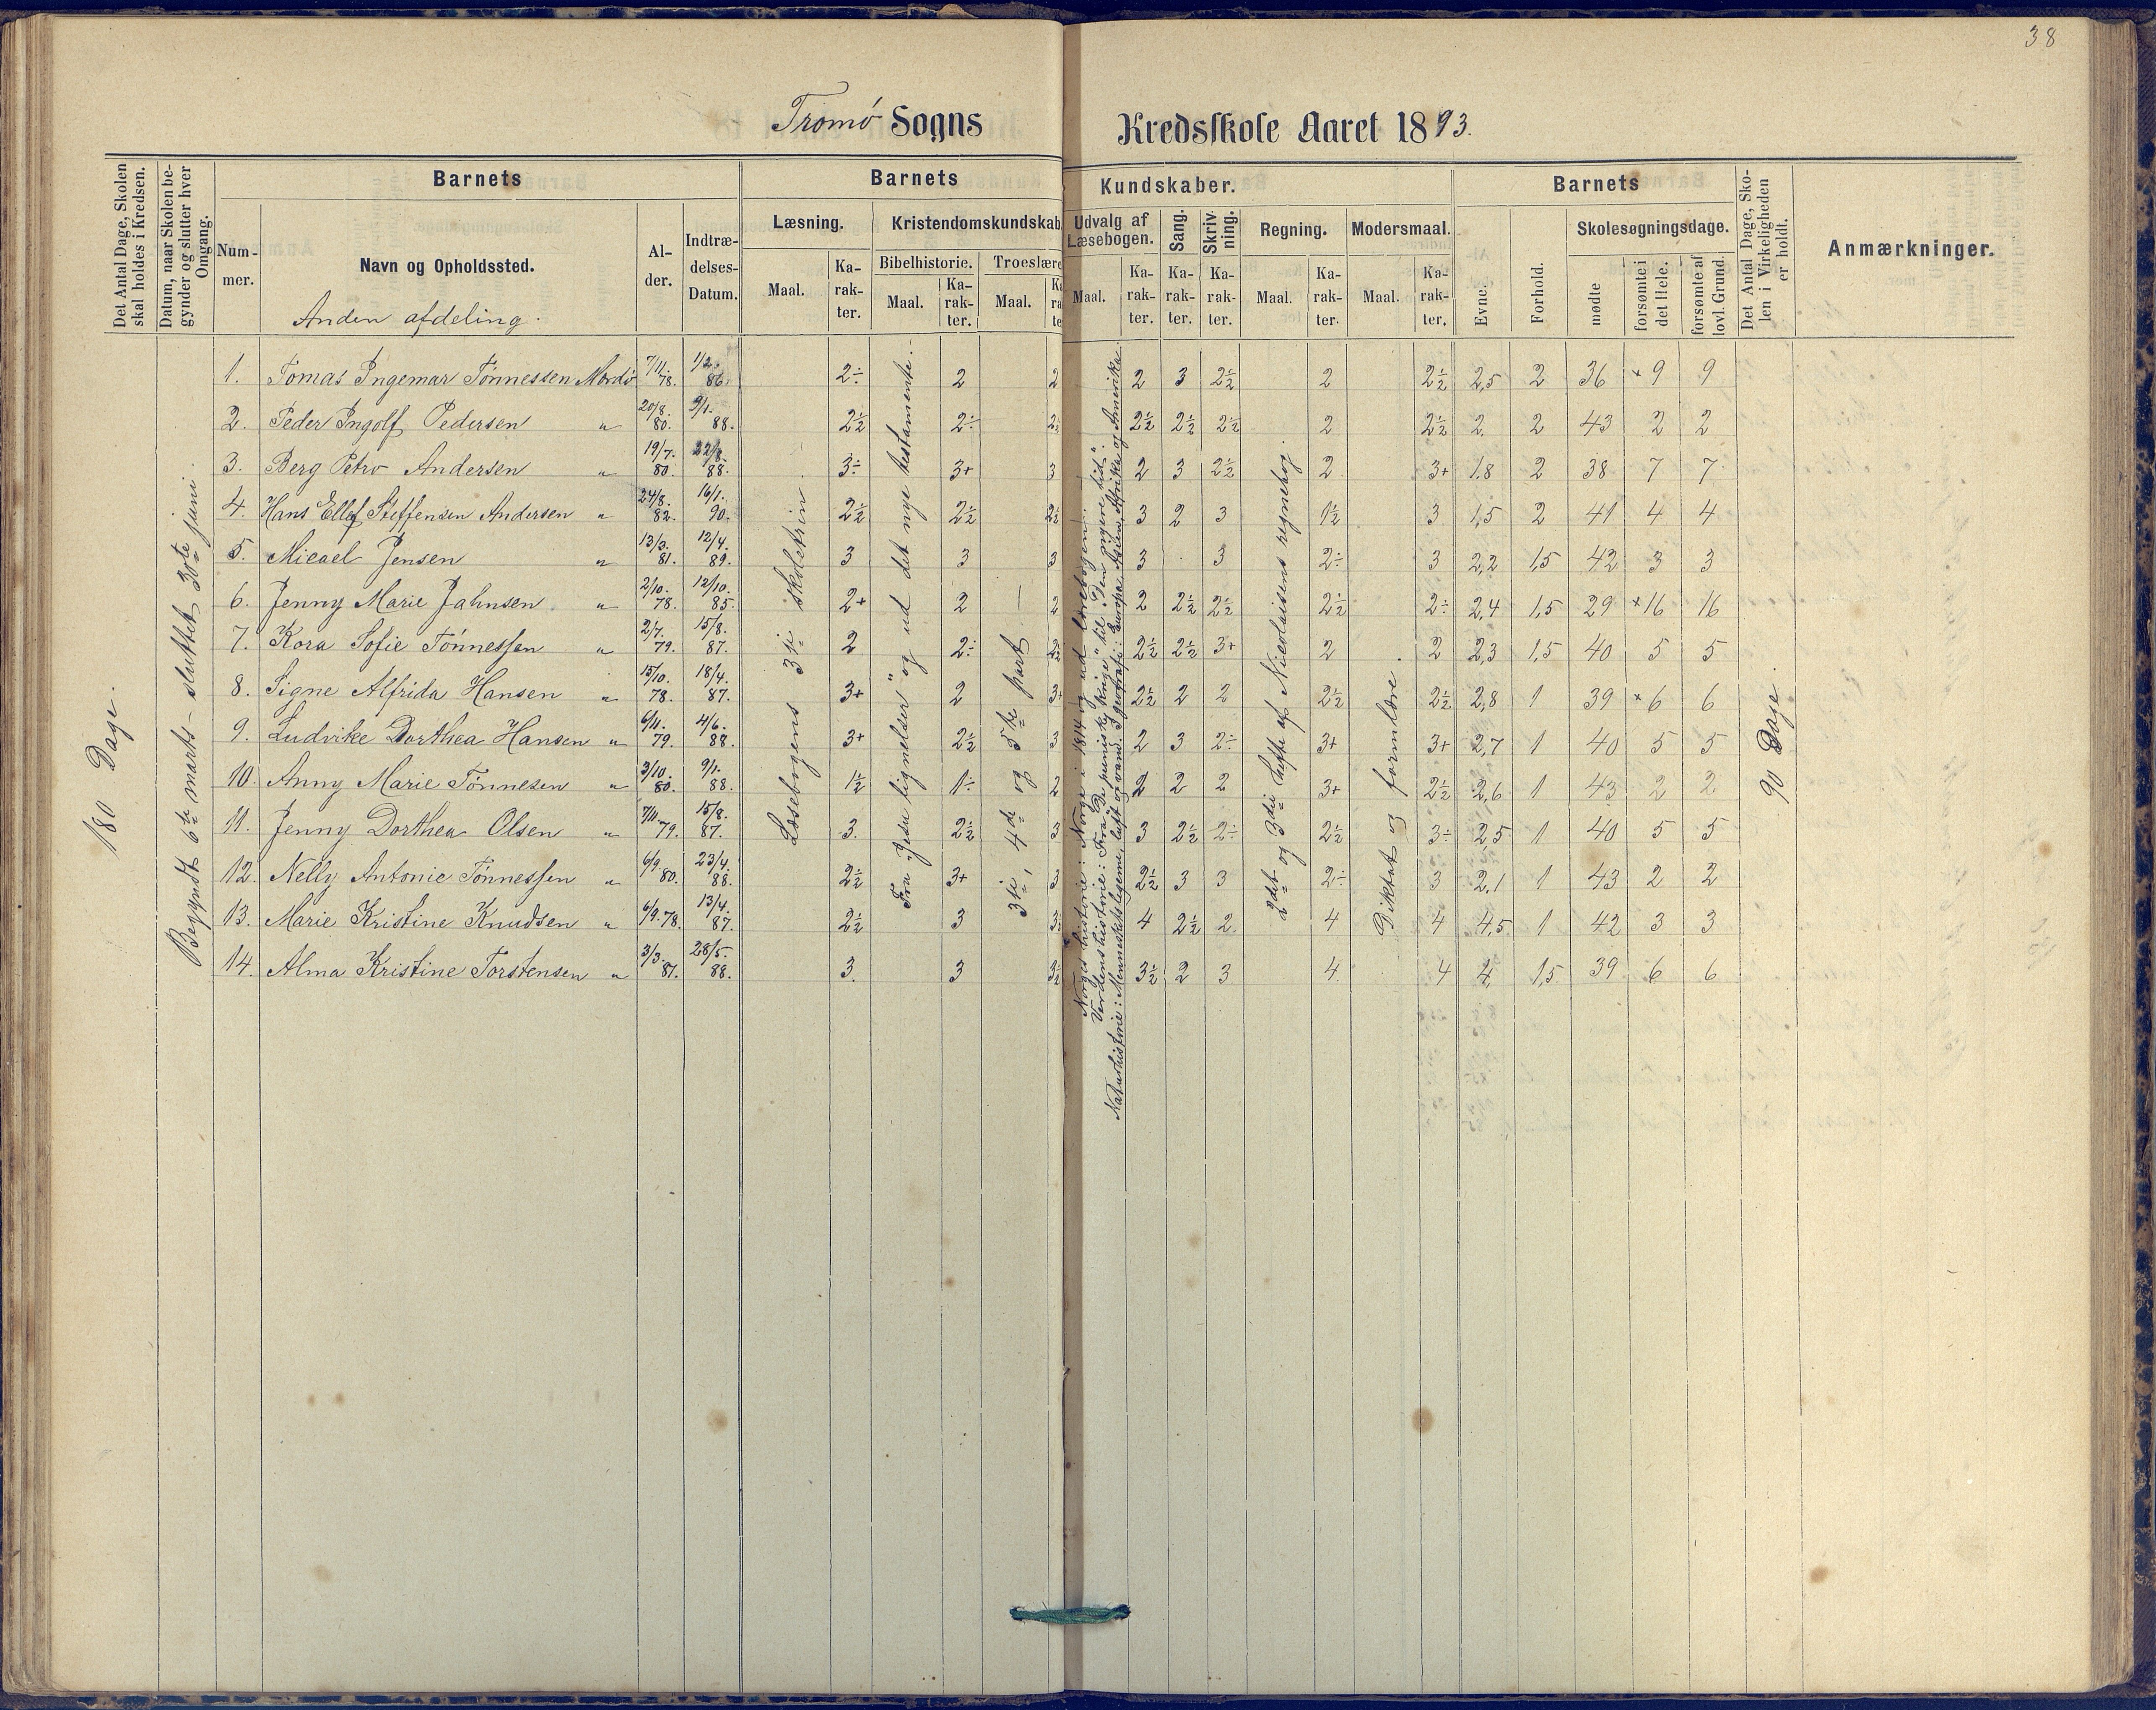 38
Tromø Sogns Kredsskole Aaret 1893.
Det Antal Dage, Skolen skal holdes i Kredsen.
Datum, naar Skolen begynder og slutter hver Omgang.
Barnets
Num-mer.
Navn og Opholdssted.
Al-der.
Indtræ-delses-Datum.
Barnets Kundskaber.
Læsning.
Maal. Ka-rak-ter.
Kristendomskundskab
Bibelhistorie. Troeslære
Maal. Ka-rak-ter. Maal.
Udvalg af Læsebogen.
Maal. Ka-rak-ter.
Sang. Ka-rak-ter.
Skriv-ning. Ka-rak-ter.
Regning. Maal. Ka-rak-ter.
Modersmaal. Maal. Ka-rak-ter.
Barnets
Evne. Forhold.
Skolesøgningsdage.
mødte forsømte i det Hele. forsømte af lovl. Grund.
Det Antal Dage, Sko-len i Virkeligheden er holdt.
Anmærkninger.
Anden afdeling.
180 Dage.
Begyndt 6te marts – sluttet 30te juni.
Læsebogens 3die skoletrin.
Fra "Jesu lignelser" og ud det nye testamente.
3die, 4de og 5te part.
Norges historie: Norge i 1814 og ud lærebogen.
Verdenshistorie: Fra "De puniske krige" til "Den nyere tid".
Naturhistorie: Menneskelegeme, luft og vand. I geografi: Europa, Asien, Afrika og Amerika.
2det og 3die hefte af Nicolaisens regnebog.
Diktat og formlære.
90 Dage.
1. Tomas Ingemar Tønnessen Mærdø 7/11. 78. 1/2. 86. 2÷ 2 2 2 3 2½ 2 2½ 2,5 2 36 ×9 9
2. Peder Ingolf Pedersen " 20/8. 80. 9/1. 88. 2½ 2÷ 2½ 2½ 2½ 2 2½ 2 2 43 2 2
3. Berg Petro Andersen " 19/7. 80. 22/8. 88. 3÷ 3+ 3 2 3 2½ 2 3+ 1.8 2 38 7 7
4. Hans Ellef Steffensen Andersen " 24/8. 82. 16/1. 90. 2½ 2½ 2½ 3 2 3 1½ 3 1,5 2 41 4 4
5. Micael Jensen " 13/3. 81. 12/4. 89. 3 3 3 3 3 2÷ 3 2,2 1,5 42 3 3
6. Jenny Marie Jahnsen " 2/10. 78. 12/10. 85. 2+ 2 2 2 2½ 2½ 2½ 2÷ 2,4 1,5 29 ×16 16
7. Kora Sofie Tønnessen " 2/7. 79. 15/8. 87. 2 2÷ 2½ 2½ 2½ 3+ 2 2 2,3 1,5 40 5 5
8. Signe Alfrida Hansen " 15/10. 78. 18/4. 87. 3+ 2 3+ 2½ 2 2 2½ 2½ 2,8 1 39 ×6 6
9. Ludvike Dorthea Hansen " 6/11. 79. 4/6. 88. 3+ 2½ 3 2 3 2÷ 3+ 3+ 2,7 1 40 5 5
10. Anny Marie Tønnesen " 3/10. 80. 9/1. 88. 1½ 1÷ 2 2 2 2 3+ 2½ 2,6 1 43 2 2
11. Jenny Dorthea Olsen " 7/11. 79. 15/8. 87. 3. 2½ 3 3 2½ 2÷ 2½ 3÷ 2,5 1 40 5 5
12. Nelly Antonie Tønnessen " 6/9. 80. 23/4. 88. 2½ 3+ 3 2½ 3 3 2÷ 3 2,1 1 43 2 2
13. Marie Kristine Knudsen " 6/9. 78. 13/4. 87. 2½ 3 4 2½ 2. 4 4 4,5 1 42 3 3
14. Alma Kristine Torstensen " 3/3. 81. 28/5. 88. 3. 3 3½ 3½ 2 3 4 4 4 1,5 39 6 6